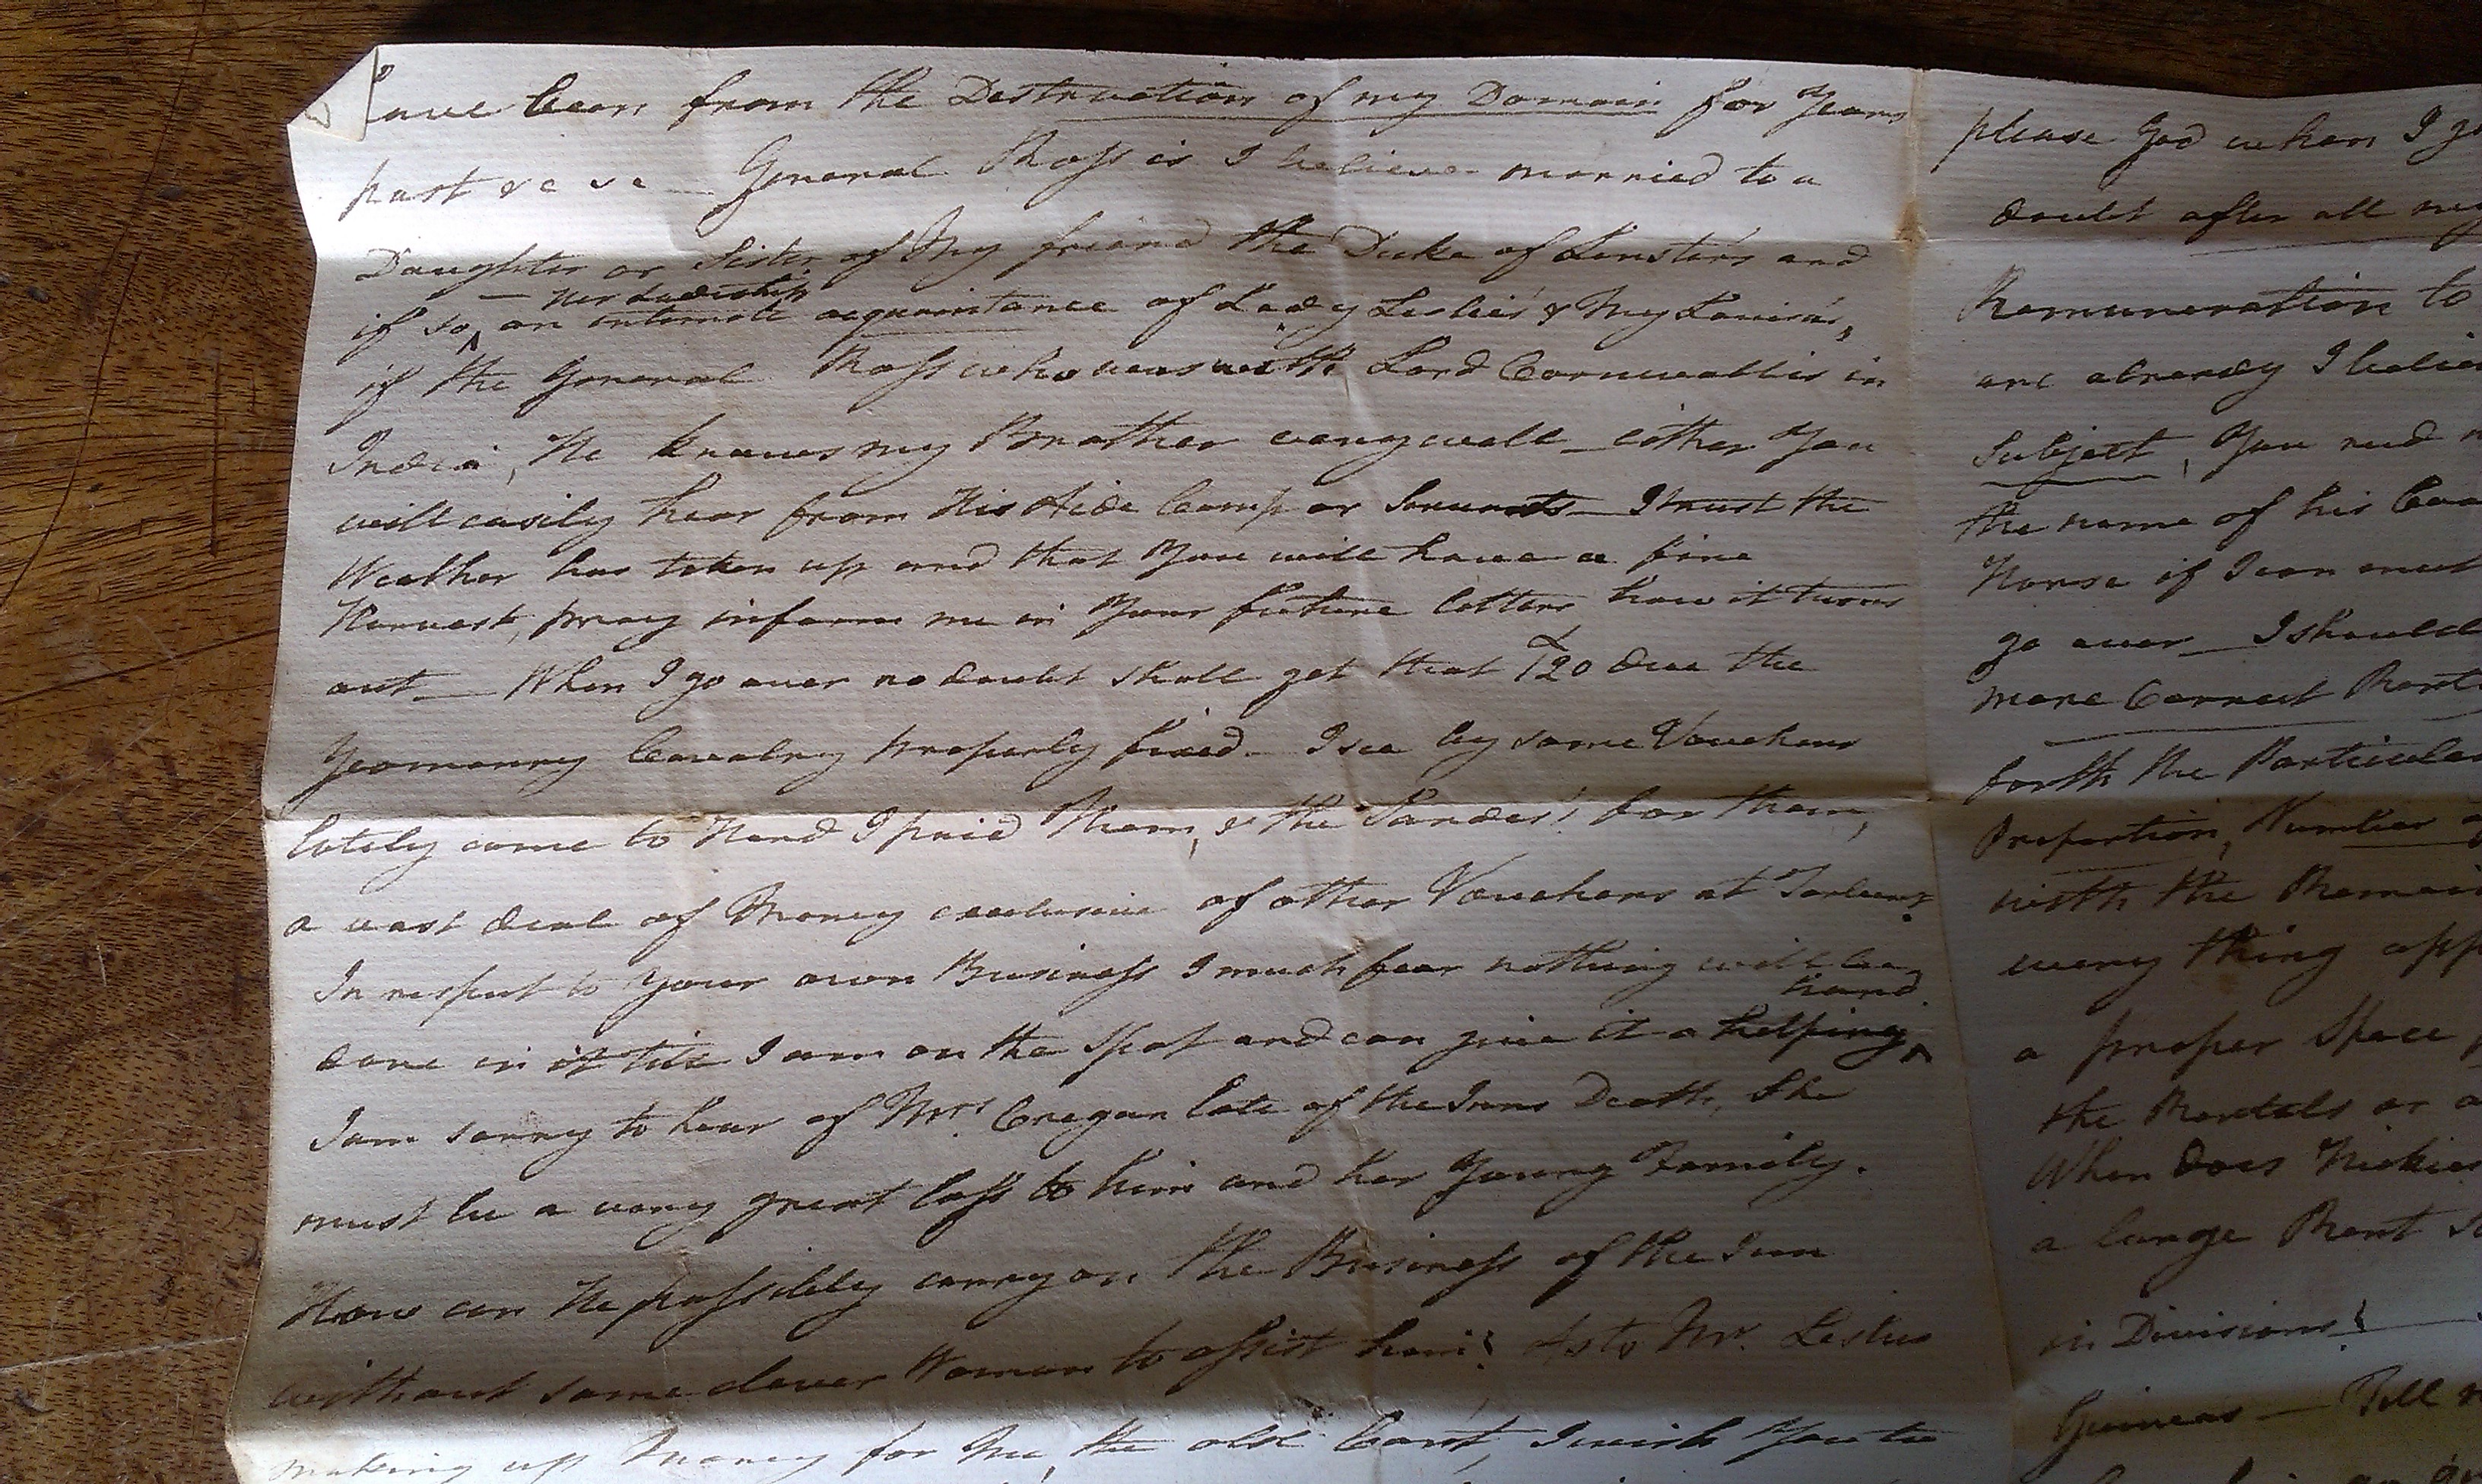 have been from the Destruction of my Domain for Years
past &c &c — General Ross is I believe married to a
Daughter or Sister of My friend the Duke of Linster's and
— Her Ladiship
if so, an intimate acquaintance of Lady Leslie's & My Louisa's,
if the General Ross who was with Lord Cornwallis in
India, He knows my Brother very well — either You
will easily hear from His Aide Camp or Servants — I trust the
Weather has taken up and that You will have a fine
Harvest, pray inform me in Your future letters how it turns
out — When I go over no doubt shall get that £120 due the
Yeomanry Cavalry properly fixed — I see by some Vouchers
lately come to Hand I paid Them, & the for them,
a vast deal of Money exclusive of other Vouchers at
In respect to Your own Business I much fear nothing will be
hand
done in it till I am on the Spot and can give it a helping
I am sorry to hear of Mrs. Cregan late of the Inns Death, She
must be a very great loss to him and her Young Family.
How can He possibly carry on the Business of the Inn
without some clever Woman to assist him! As to Mr. Leslies
making up Money for Me, the old I wish You to
please God when I go
doubt after all my
Remuneration to
are already I
Subject, You need
the name of his
Horse if I can
go over — I should
more Correct
forth the Particular
Proportion, Number
with the
every thing
a proper Space
the Rentals or
When does
a large Rent
in Divisions!
Guineas — Tell